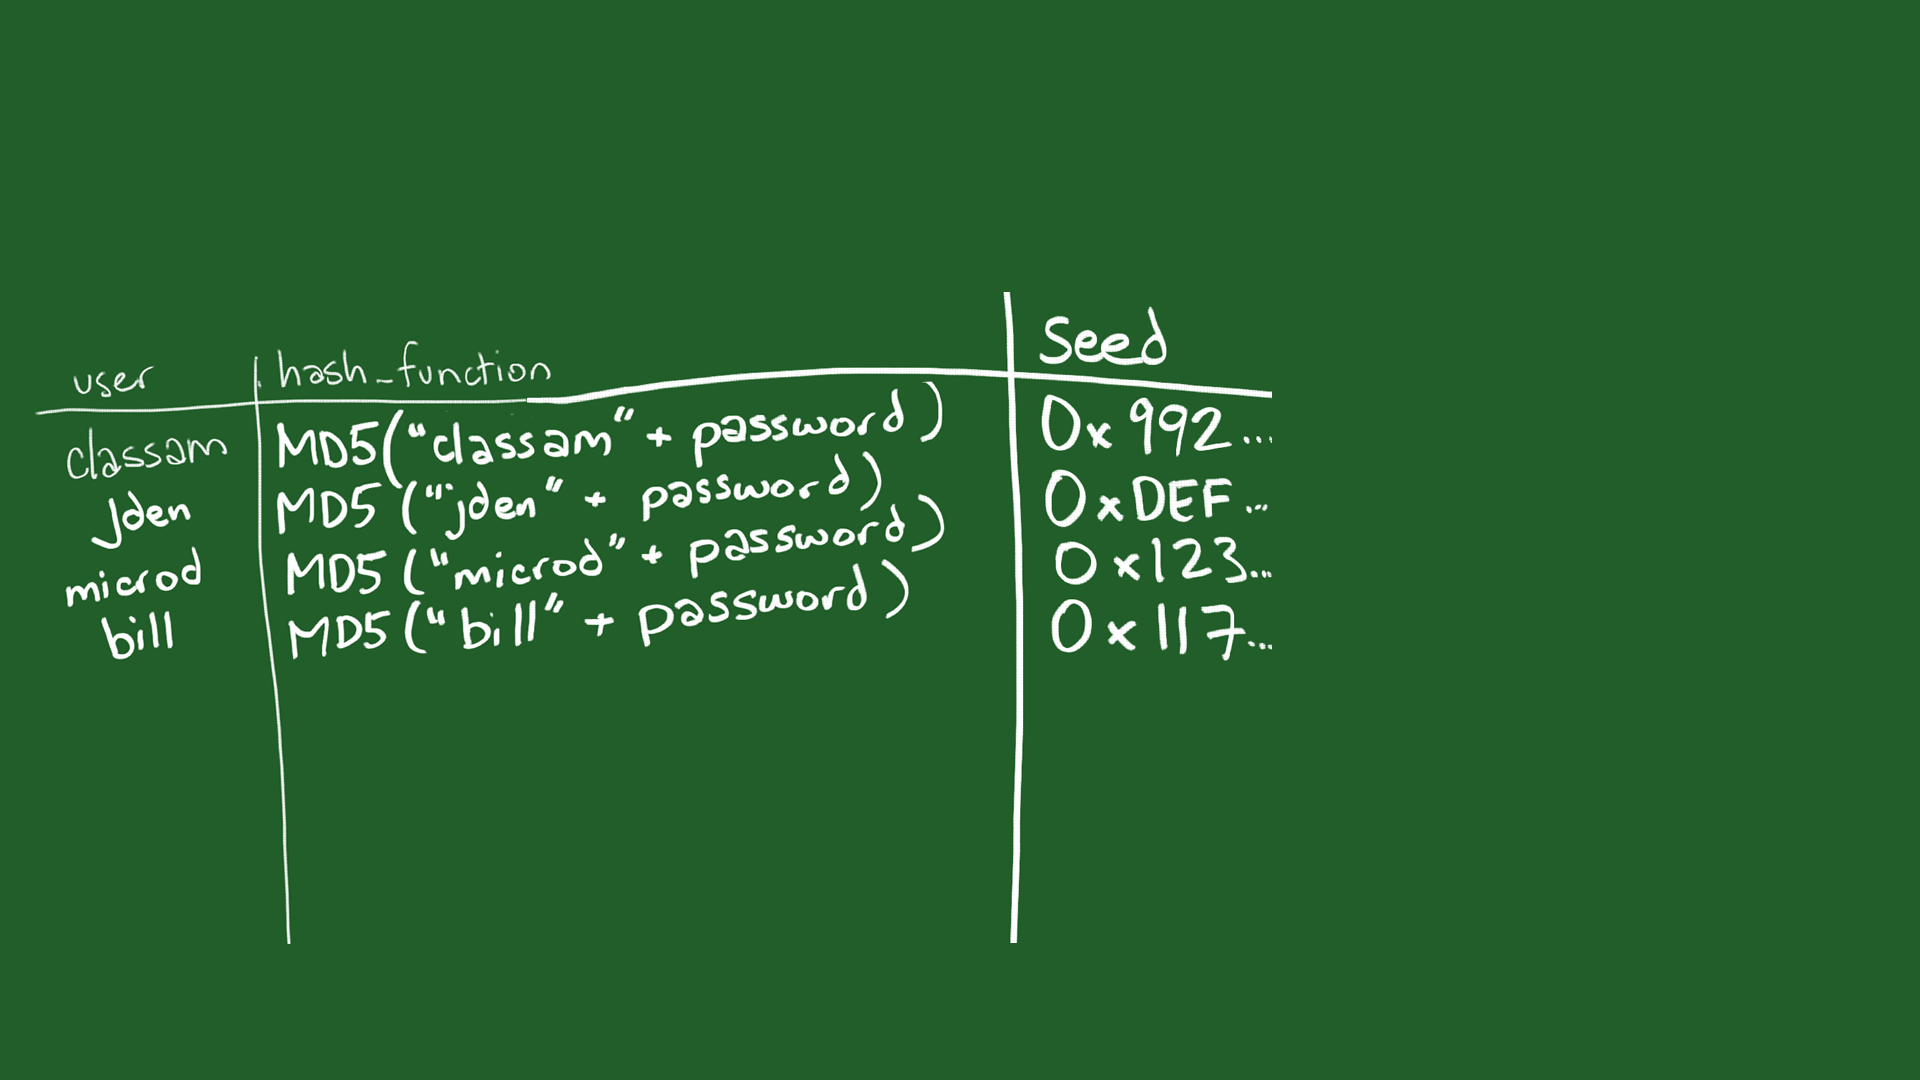 user hash_function Seed
classam MD5("classam" + password) 0x992...
jden MD5("jden" + password) 0xDEF...
microd MD5("microd" + password) 0x123...
bill MD5("bill" + password) 0x117...